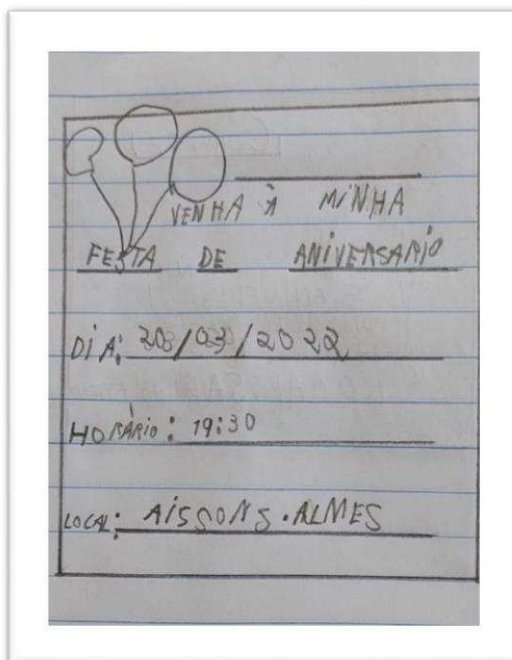 VENHA À MINHA
FESTA DE ANIVERSARIO
DIA: /03/2022
HORÁRIO: 19:30
LOCAL: AISSONS.ALMES